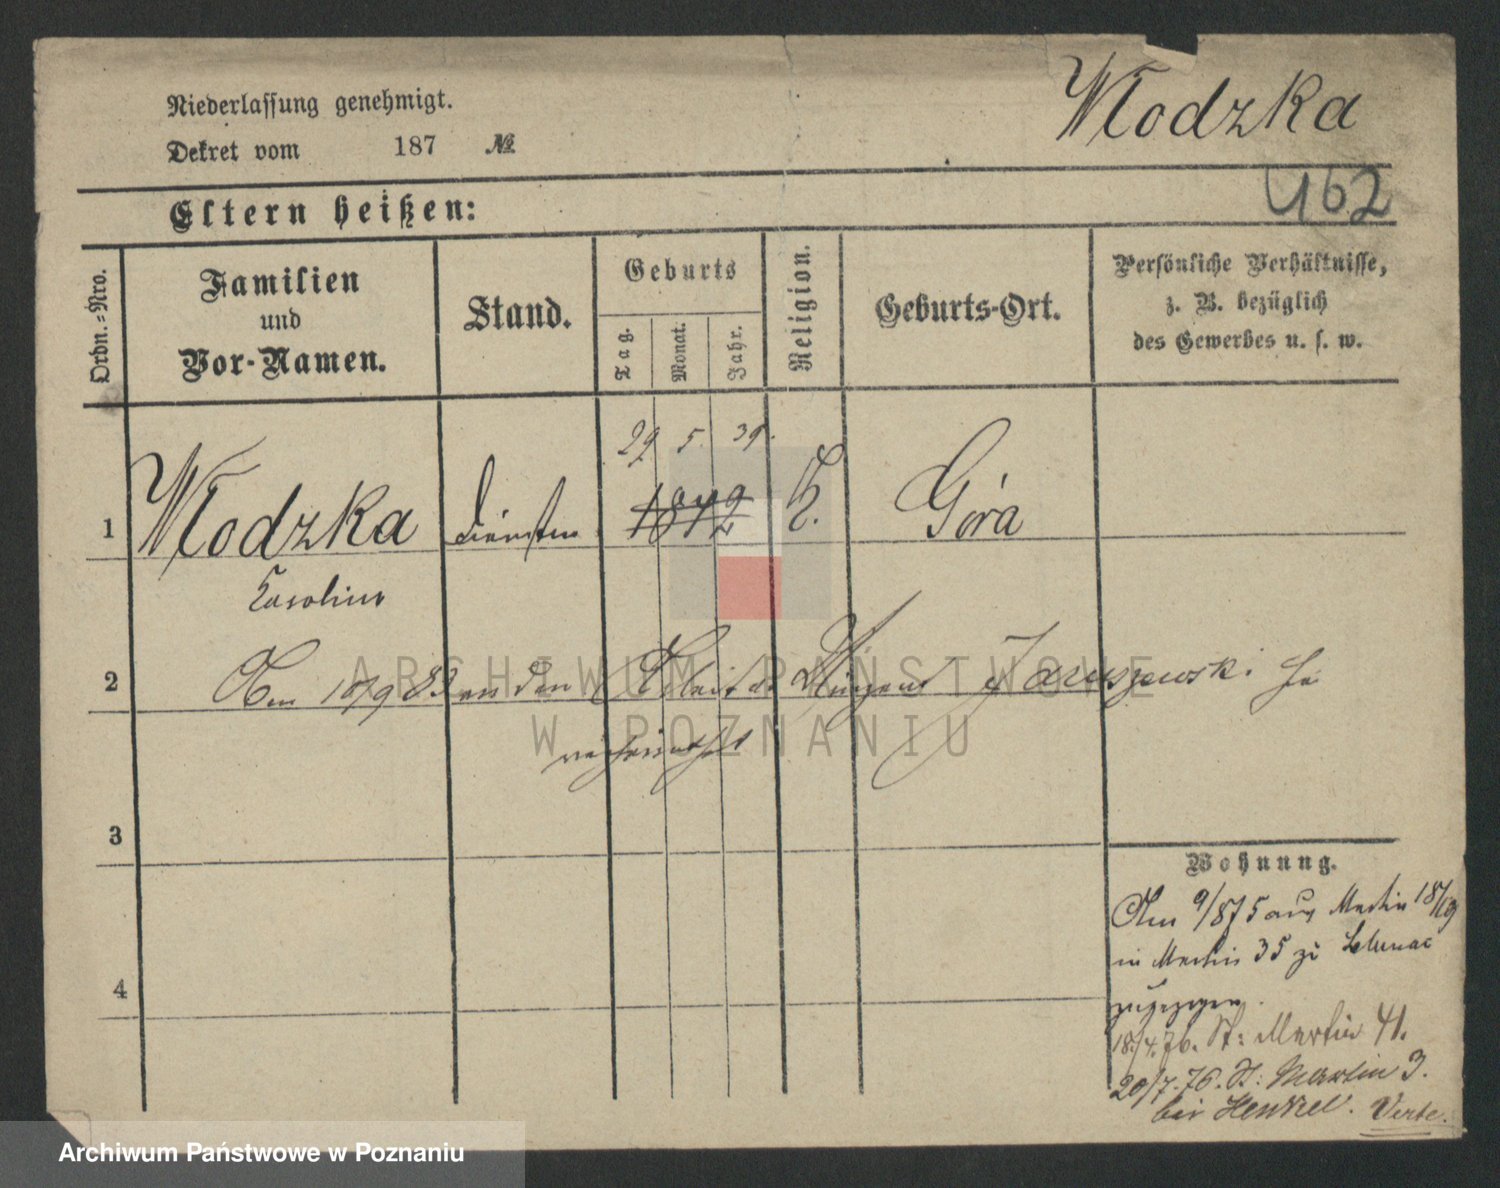 Niederlassung genehmigt.
Dekret vom 187 №
Włodzka
462
Eltern heißen:
Ordn.-Nro.
Familien
und
Vor-Namen.
Stand.
Geburts
Tag.
Monat.
Jahr.
Religion.
Geburts-Ort.
Persönliche Verhältnisse,
z. B. bezüglich
des Gewerbes u. s. w.
29 5. 39.
1 Włodzka 1872 K. Góra
Karoline
2 Am 16/9 83 an den Arbeiter Jaruszewski
verheirathet
3
Wohnung.
Am 9/875 aus Martin 18/19
in Martin 35 zu
zugezogen.
4
18/4.76. St: Martin 41.
20/7.76. St: Martin 3.
bei Henkel. Verte.
ARCHIWUM PAŃSTWOWE
W POZNANIU
Archiwum Państwowe w Poznaniu